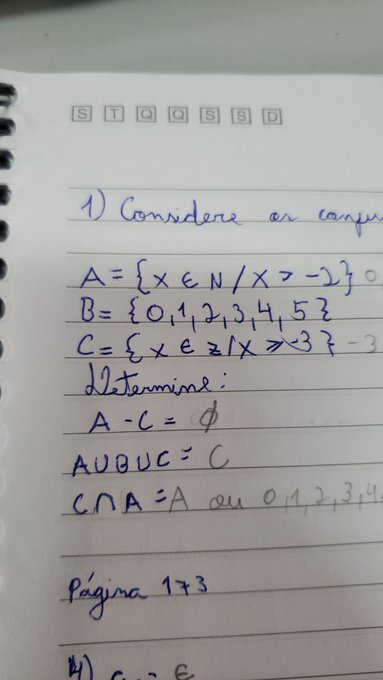 S T Q Q S S D
1) Considere os
A = {x ∈ N / x > -2} 0
B = {0,1,2,3,4,5}
C = {x ∈ z / x ⩾ -3} -3
Determine:
A - C = ∅
A U B U C = C
C ∩ A = A ou 0,1,2,3,4,
Página 173
4)